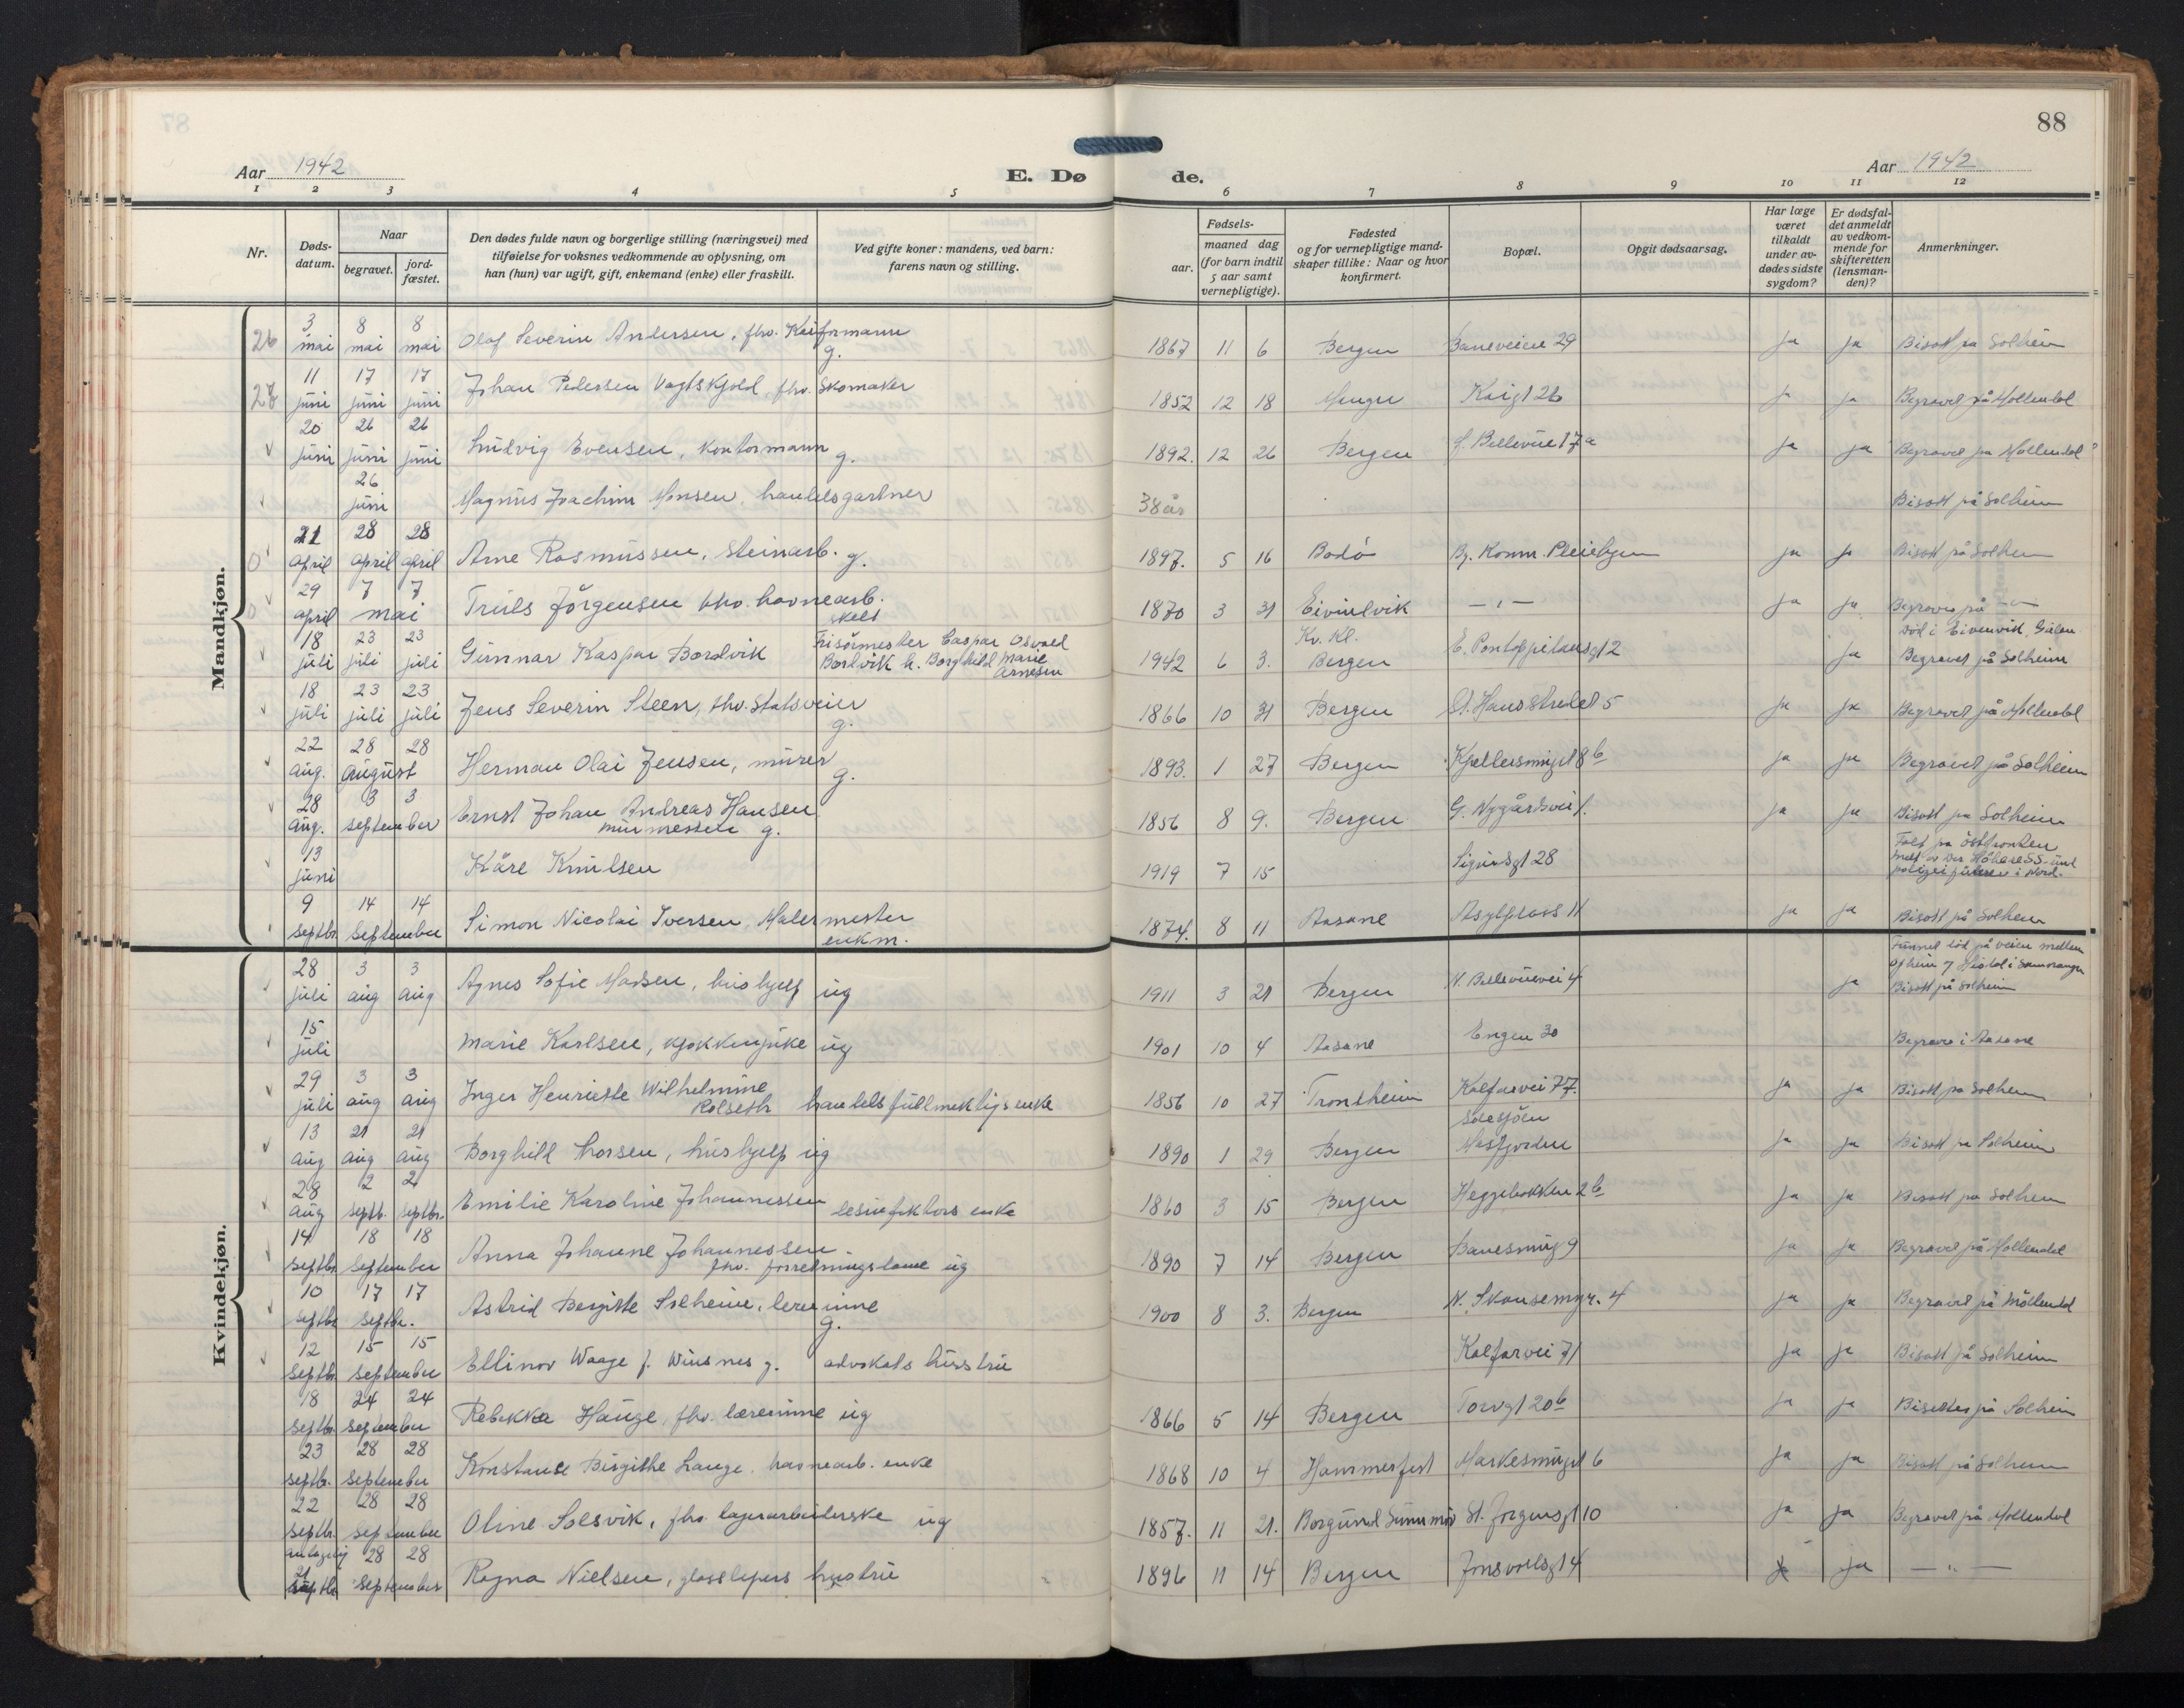 88
Aar 1942
E. Dø
de.
Aar 1942
1 2 3 4 5 6 7 8 9 10 11 12
Nr.
Døds-datum.
Naar
begravet.
jord-fæstet.
Den dødes fulde navn og borgerlige stilling (næringsvei) med
tilføielse for voksnes vedkommende av oplysning, om
han (hun) var ugift, gift, enkemand (enke) eller fraskilt.
Ved gifte koner: mandens, ved barn:
farens navn og stilling.
Fødsels-
aar.
maaned dag
(for barn indtil
5 aar samt
vernepligtige).
Fødested
og for vernepligtige mand-
skaper tillike: Naar og hvor
konfirmert.
Bopæl.
Opgit dødsaarsag.
Har læge
været
tilkaldt
under av-
dødes sidste
sygdom?
Er dødsfal-
det anmeldt
av vedkom-
mende for
skifteretten
(lensman-
den)?
Anmerkninger.
Mandkjøn.
26 3 mai 8 mai 8 mai Olaf Severin Andersen, fhv. Kaiformann g. 1867 11 6 Bergen Baneveien 29 ja ja Bisatt på Solheim
28 11 juni 17 juni 17 juni Johan Pedersen Vagtskjold, fhv. Skomaker 1852 12 18 Kaigt 26 ja ja Begravet på Møllendal
20 juni 26 juni 26 juni Ludvig Evensen, Kontormann g. 1892. 12 26 Bergen Bellevue 17a ja ja Begravet på Møllendal
26 juni Magnus Joachim Monsen, handelsgartner 38 år Bisatt på Solheim
21 april 28 april 28 april Arne Rasmussen, Steinarb. g. 1897. 5 16 Bodö Bg. Komm. Pleiehjem ja ja Bisatt på Solheim
29 april 7 7 mai Truls Jörgensen fhv. havnearb. skilt 1870 3 31 Eivindvik — " — ja ja Begraves på — " —
Död i Eivenvik, Gulen
18 juli 23 juli 23 juli Gunnar Kaspar Bordvik Frisörmester Caspar Osvald Bordvik h. Borghild Marie Arnesen 1942 6 3. Kv. Kl. Bergen E. Pontoppidansgt 2 ja Begravet på Solheim
18 juli 23 juli 23 juli Jens Severin Steen, fhv. Statsveier g. 1866 10 31 Bergen St. Hansstredet 5 ja ja Begravet på Møllendal
22 aug. 28 28 august Herman Olai Jensen, murer g. 1893. 1 27 Bergen Kjellersmugt 8b ja ja Begravet på Solheim
28 aug. 3 3 september Ernst Johan Andreas Hansen murmester g. 1856 8 9. Bergen G. Nygårdsvei 1. ja ja Bisatt på Solheim
13 juni Kåre Knudsen 1919 7 15 Sigurdsgt 28 Falt på östfronten
9 septbr. 14 14 September Simon Nicolai Iversen, Malermester enkm. 1874. 8 11 Aasane Asylplass 11 ja ja Bisatt på Solheim
Kvindekjøn.
28 juli 3 aug 3 aug Agnes Sofie Madsen, hushjelp ug 1911 3 21 Bergen N. Bellevuevei 4 ja Funnet död på veien mellem
Bisatt på Solheim
15 juli Marie Karlsen, kjøkkenpike ug 1901 10 4 Aasane Engen 30 Begraves i Aasane
29 juli 3 aug 3 aug Inger Henriette Wilhelmine Rolseth handelsfullmektigs enke 1856 10 27 Trondheim Kalfarvei 77. ja ja Bisatt på Solheim
13 aug 21 aug 21 aug Borghild Thorsen, hushjelp ug 1890 1 29 Bergen Masfjorden ja ja Bisatt på Solheim
28 aug 2 septb. 2 septbr. Emilie Karoline Johannessen desinfektörs enke 1860 3 15 Bergen Heggebakken 2b ja ja Bisatt på Solheim
14 septbr. 18 18 September Anna Johanne Johannessen fhv. forretningsdame ug 1890 7 14 Bergen Banesmug 9 ja ja Begravet på Møllendal
10 septbr 17 17 septbr. Astrid Bergitte Solheim, lererinne g. 1900 8 3. Bergen N. Skansemyr. 4 ja ja Begravet på Møllendal
12 septbr. 15 15 september Ellinor Waage f. Winsnes g. advokats hustru Kalfarvei 71 ja ja Bisatt på Solheim
18 septbr. 24 24 september Rebekka Hauge, fhv. lærerinne ug 1866 5 14 Bergen Torvgt 20b ja ja Bisettes på Solheim
23 septbr. 28 28 september Konstanse Birgithe Lange, havnearb. enke 1868 10 4 Hammerfest Markesmuget 6 ja ja Bisatt på Solheim
22 septbr. 28 28 september Oline Solsvik, fhv. lagerarbeiderske ug 1857. 11 21. Borgund Sunnmör St. Jørgensgt 10 ja ja Begravet på Møllendal
antagelig 21 septbr 28 28 september Ragna Nielsen, glasslipers hustru 1896 11 14 Bergen Jonsvollsgt 4 ja — " —